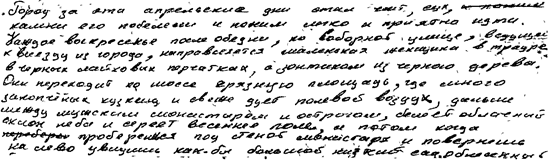 Город за эти апрельские дни стал чист, сух,
камни его побелели и по ним легко и приятно идти.
Каждое воскресенье после обедни, по Соборной улице, ведущей
к выезду из города, направляется маленькая женщина в трауре,
в черных лайковых перчатках, с зонтиком из черного дерева.
Она переходит по шоссе грязную площадь, где много
закопчёных кузниц и свежо дует полевой воздух, дальше
между мужским монастырём и острогом, белеет облачный
склон неба и сереет весеннее поле, а потом когда
проберешься под стеной монастыря и повернешь
на лево увидишь как-бы большой низкий сад, обнесенный